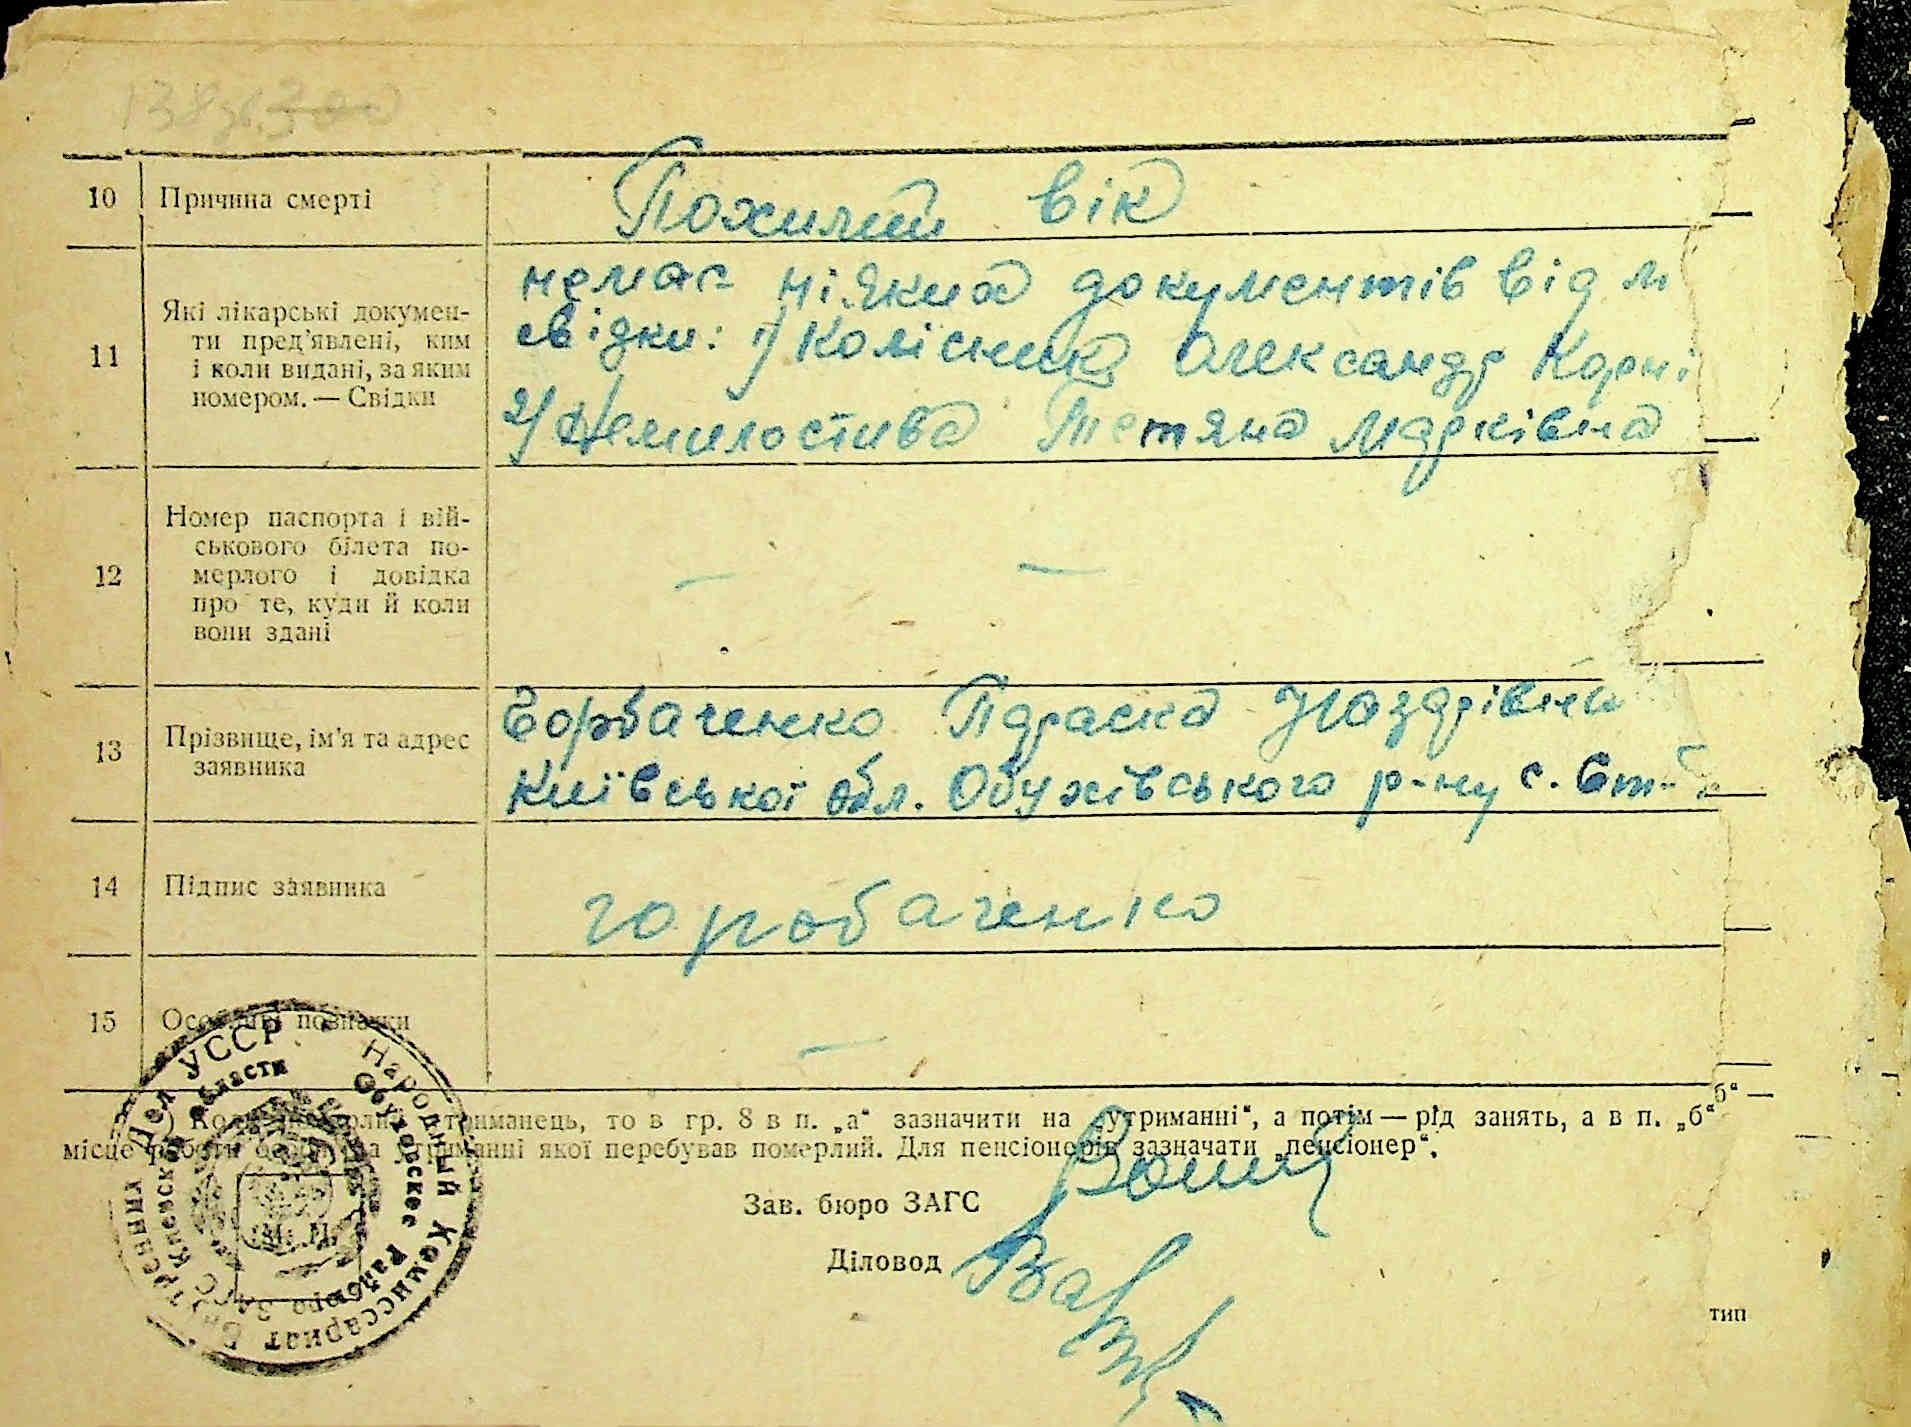 10 Причина смерті Похилий вік
11 Які лікарські докумен-
ти пред'явлені, ким
і коли видані, за яким
номером. — Свідки
немає ніяких документів від м
свідки: 1) Колісник Олександр Корні
2) Немилостива Тетяна Марківна
12 Номер паспорта і вій-
ськового білета по-
мерлого і довідка
про те, куди й коли
вони здані
— —
13 Прізвище, ім'я та адрес
заявника
Горбаченко Параска Назарівна
Київської обл. Обухівського р-ну с.
14 Підпис заявника горобаченко
15 Особливі позначки —
) Коли померлий утриманець, то в гр. 8 в п. „а“ зазначити на „утриманні“, а потім — рід занять, а в п. „б“ б“
місце роботи особи, на утриманні якої перебував померлий. Для пенсіонерів зазначати „пенсіонер“.
Зав. бюро ЗАГС
Діловод
М. П.
тип
Народный Комиссариат Внутренних Дел УССР
Обуховское Райбюро ЗАГС Киевской области